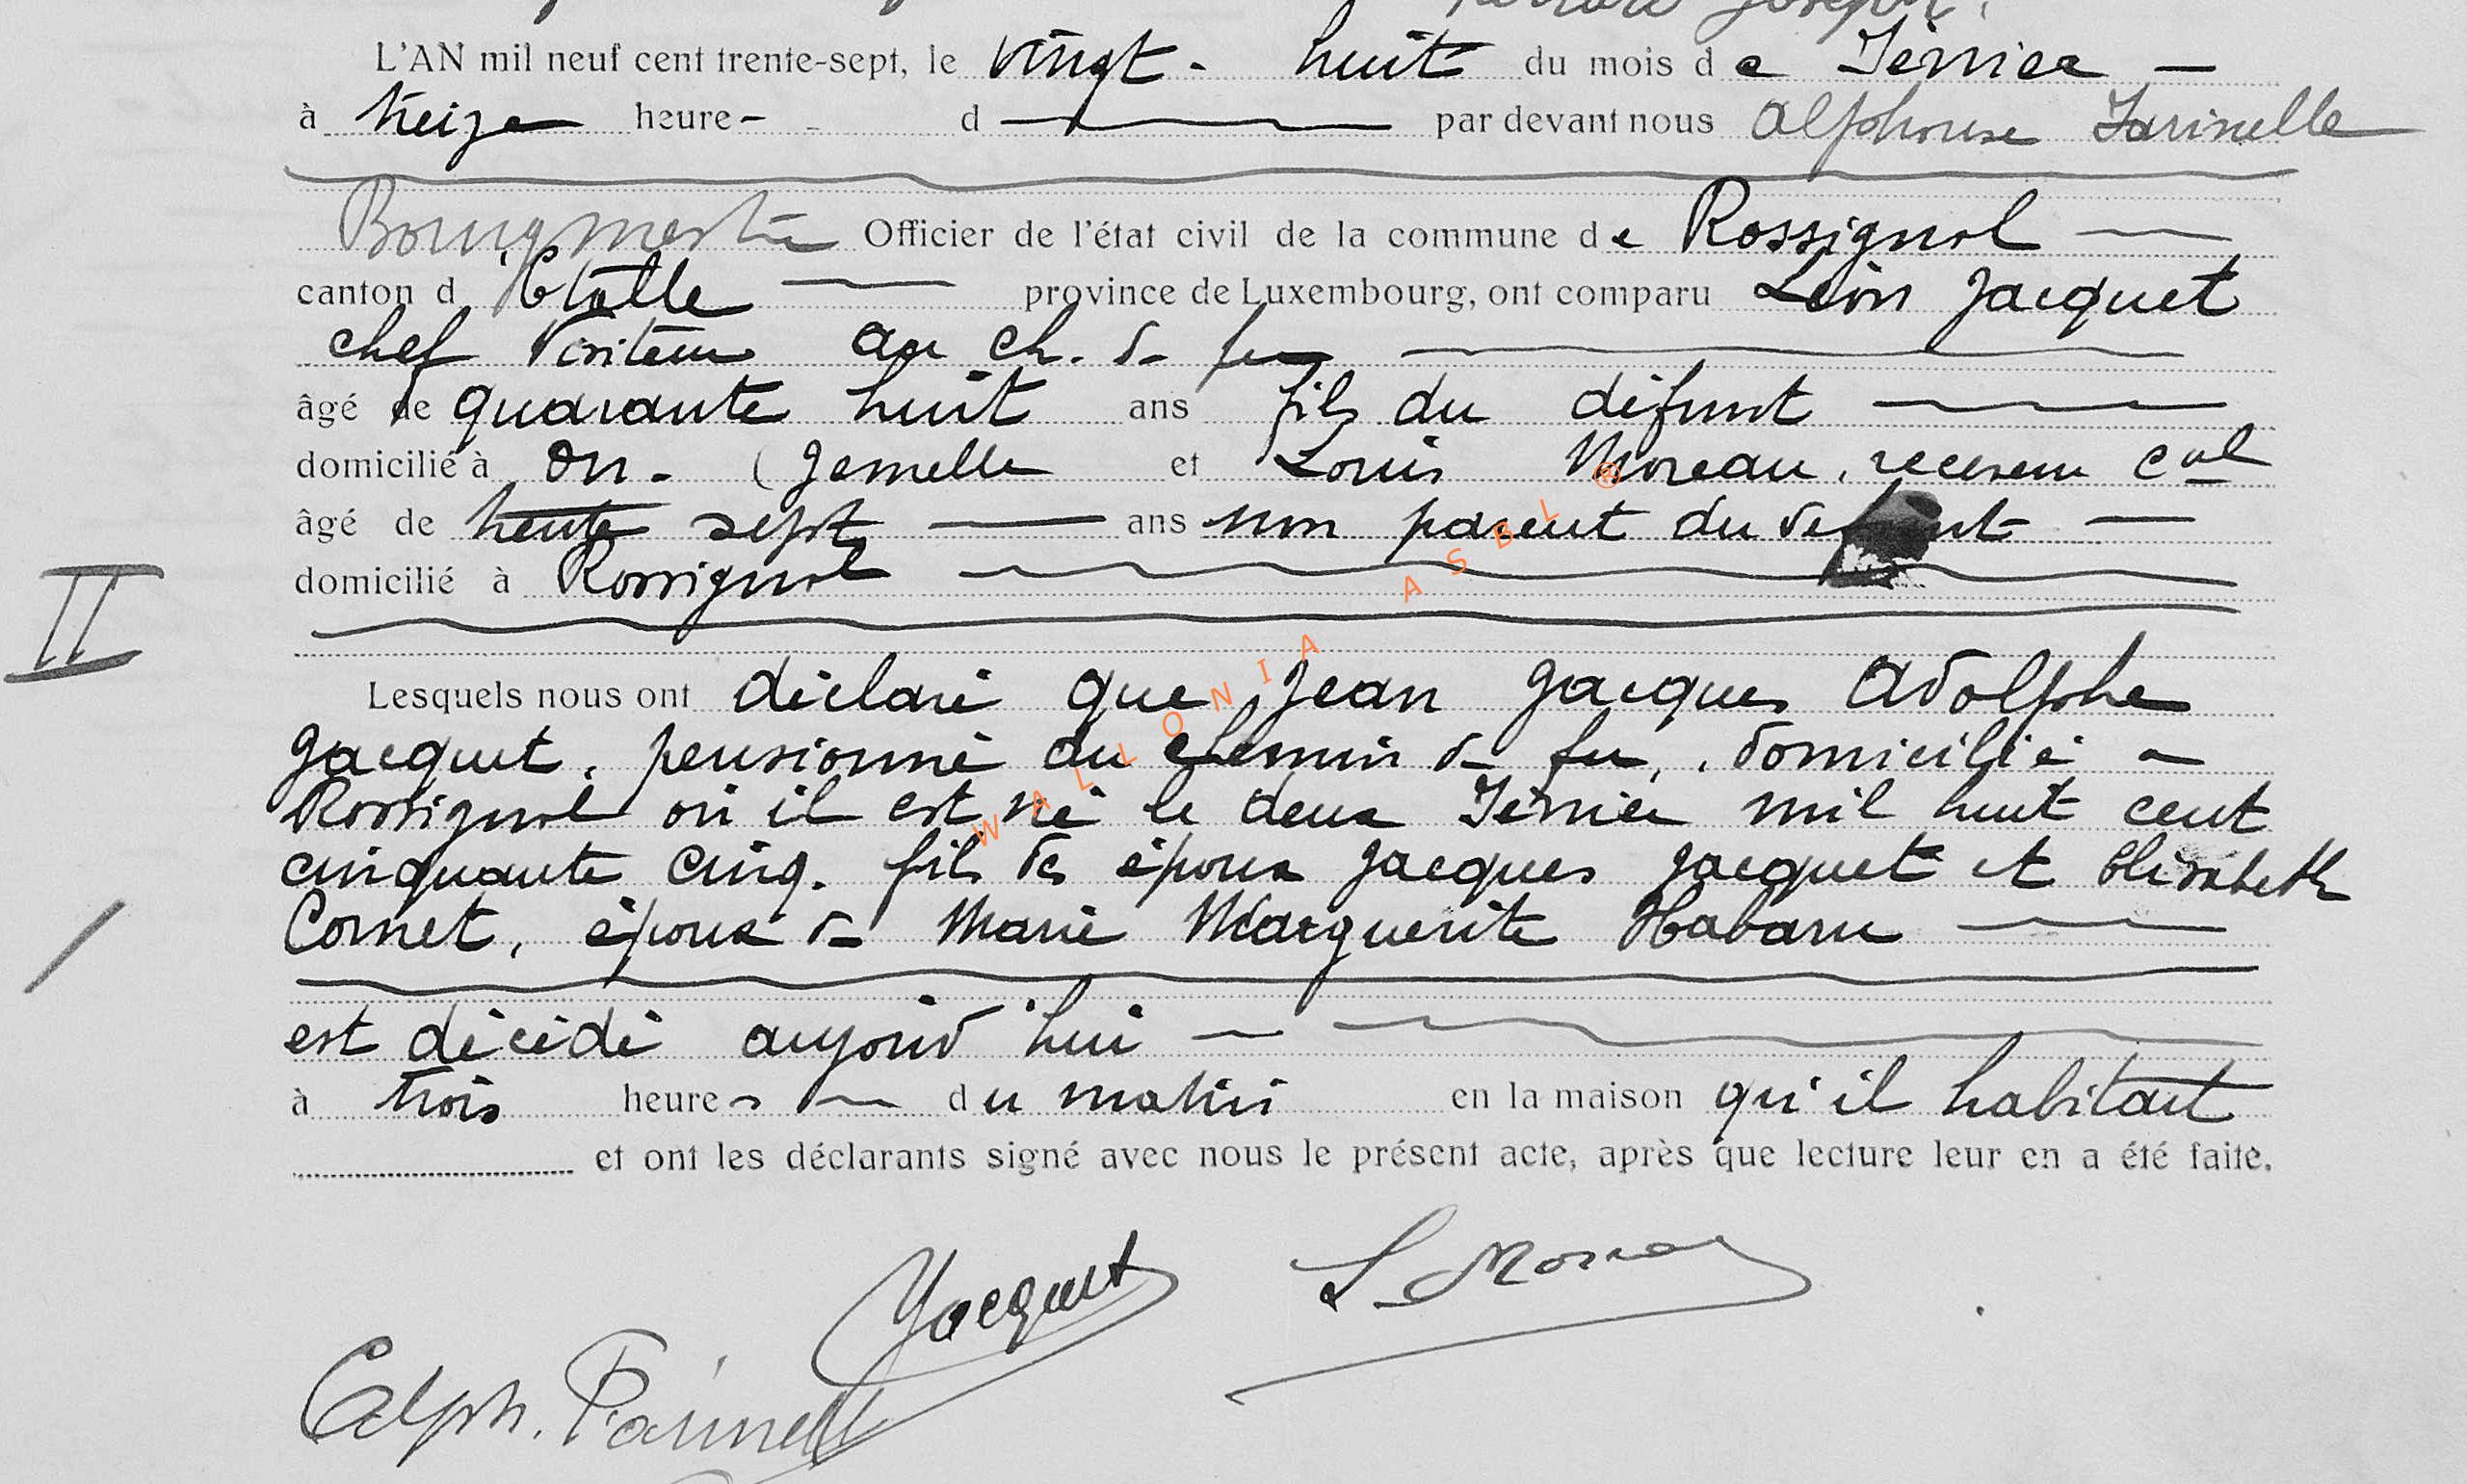 L'AN mil neuf cent trente-sept, le vingt - huit du mois de Février
à treize heure - d par devant nous Alphonse Farinelle
Bourgmestre Officier de l'état civil de la commune de Rossignol
canton d'Etalle province de Luxembourg, ont comparu Léon Jacquet
chef visiteur au ch. de fer
âgé de quarante huit ans fils du défunt
domicilié à On - (Jemelle et Louis Moreau, receveur cal
âgé de trente sept ans non parent du défunt
domicilié à Rossignol
II
Lesquels nous ont déclaré que Jean Jacques Adolphe
Jacquet, pensionné du chemin de fer, domicilié à
Rossignol où il est né le deux Février mil huit cent
cinquante cinq. fils des époux Jacques Jacquet et Elisabeth
Cornet, époux de Marie Marguerite Habaru
est décédé aujourd'hui
à trois heures du matin en la maison qu'il habitait
et ont les déclarants signé avec nous le présent acte, après que lecture leur en a été faite.
Jacquet L Moreau
Alph. Farinelle
WALLONIA ASBL ®